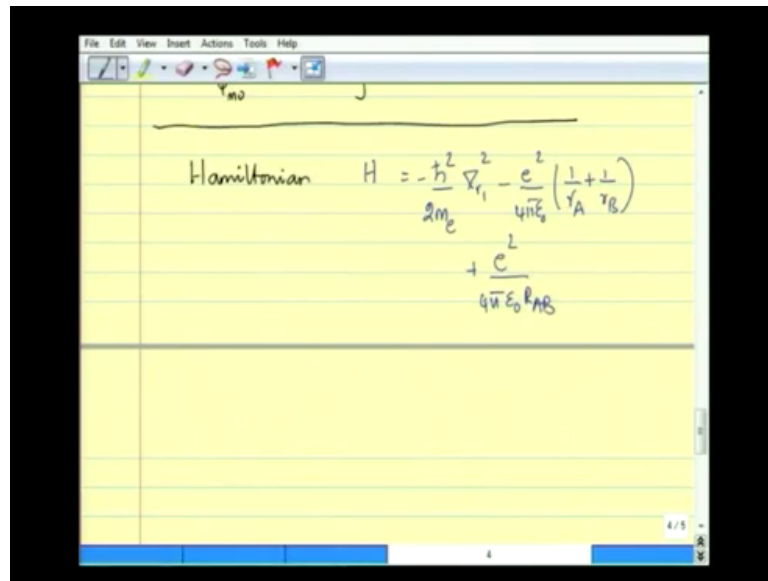 File Edit View Insert Actions Tools Help
Ψ_MO J
Hamiltonian H = -ℏ²/2m_e ∇²_r₁ - e²/4πε₀ (1/r_A + 1/r_B)
+ e²/4πε₀R_AB
4/5
4